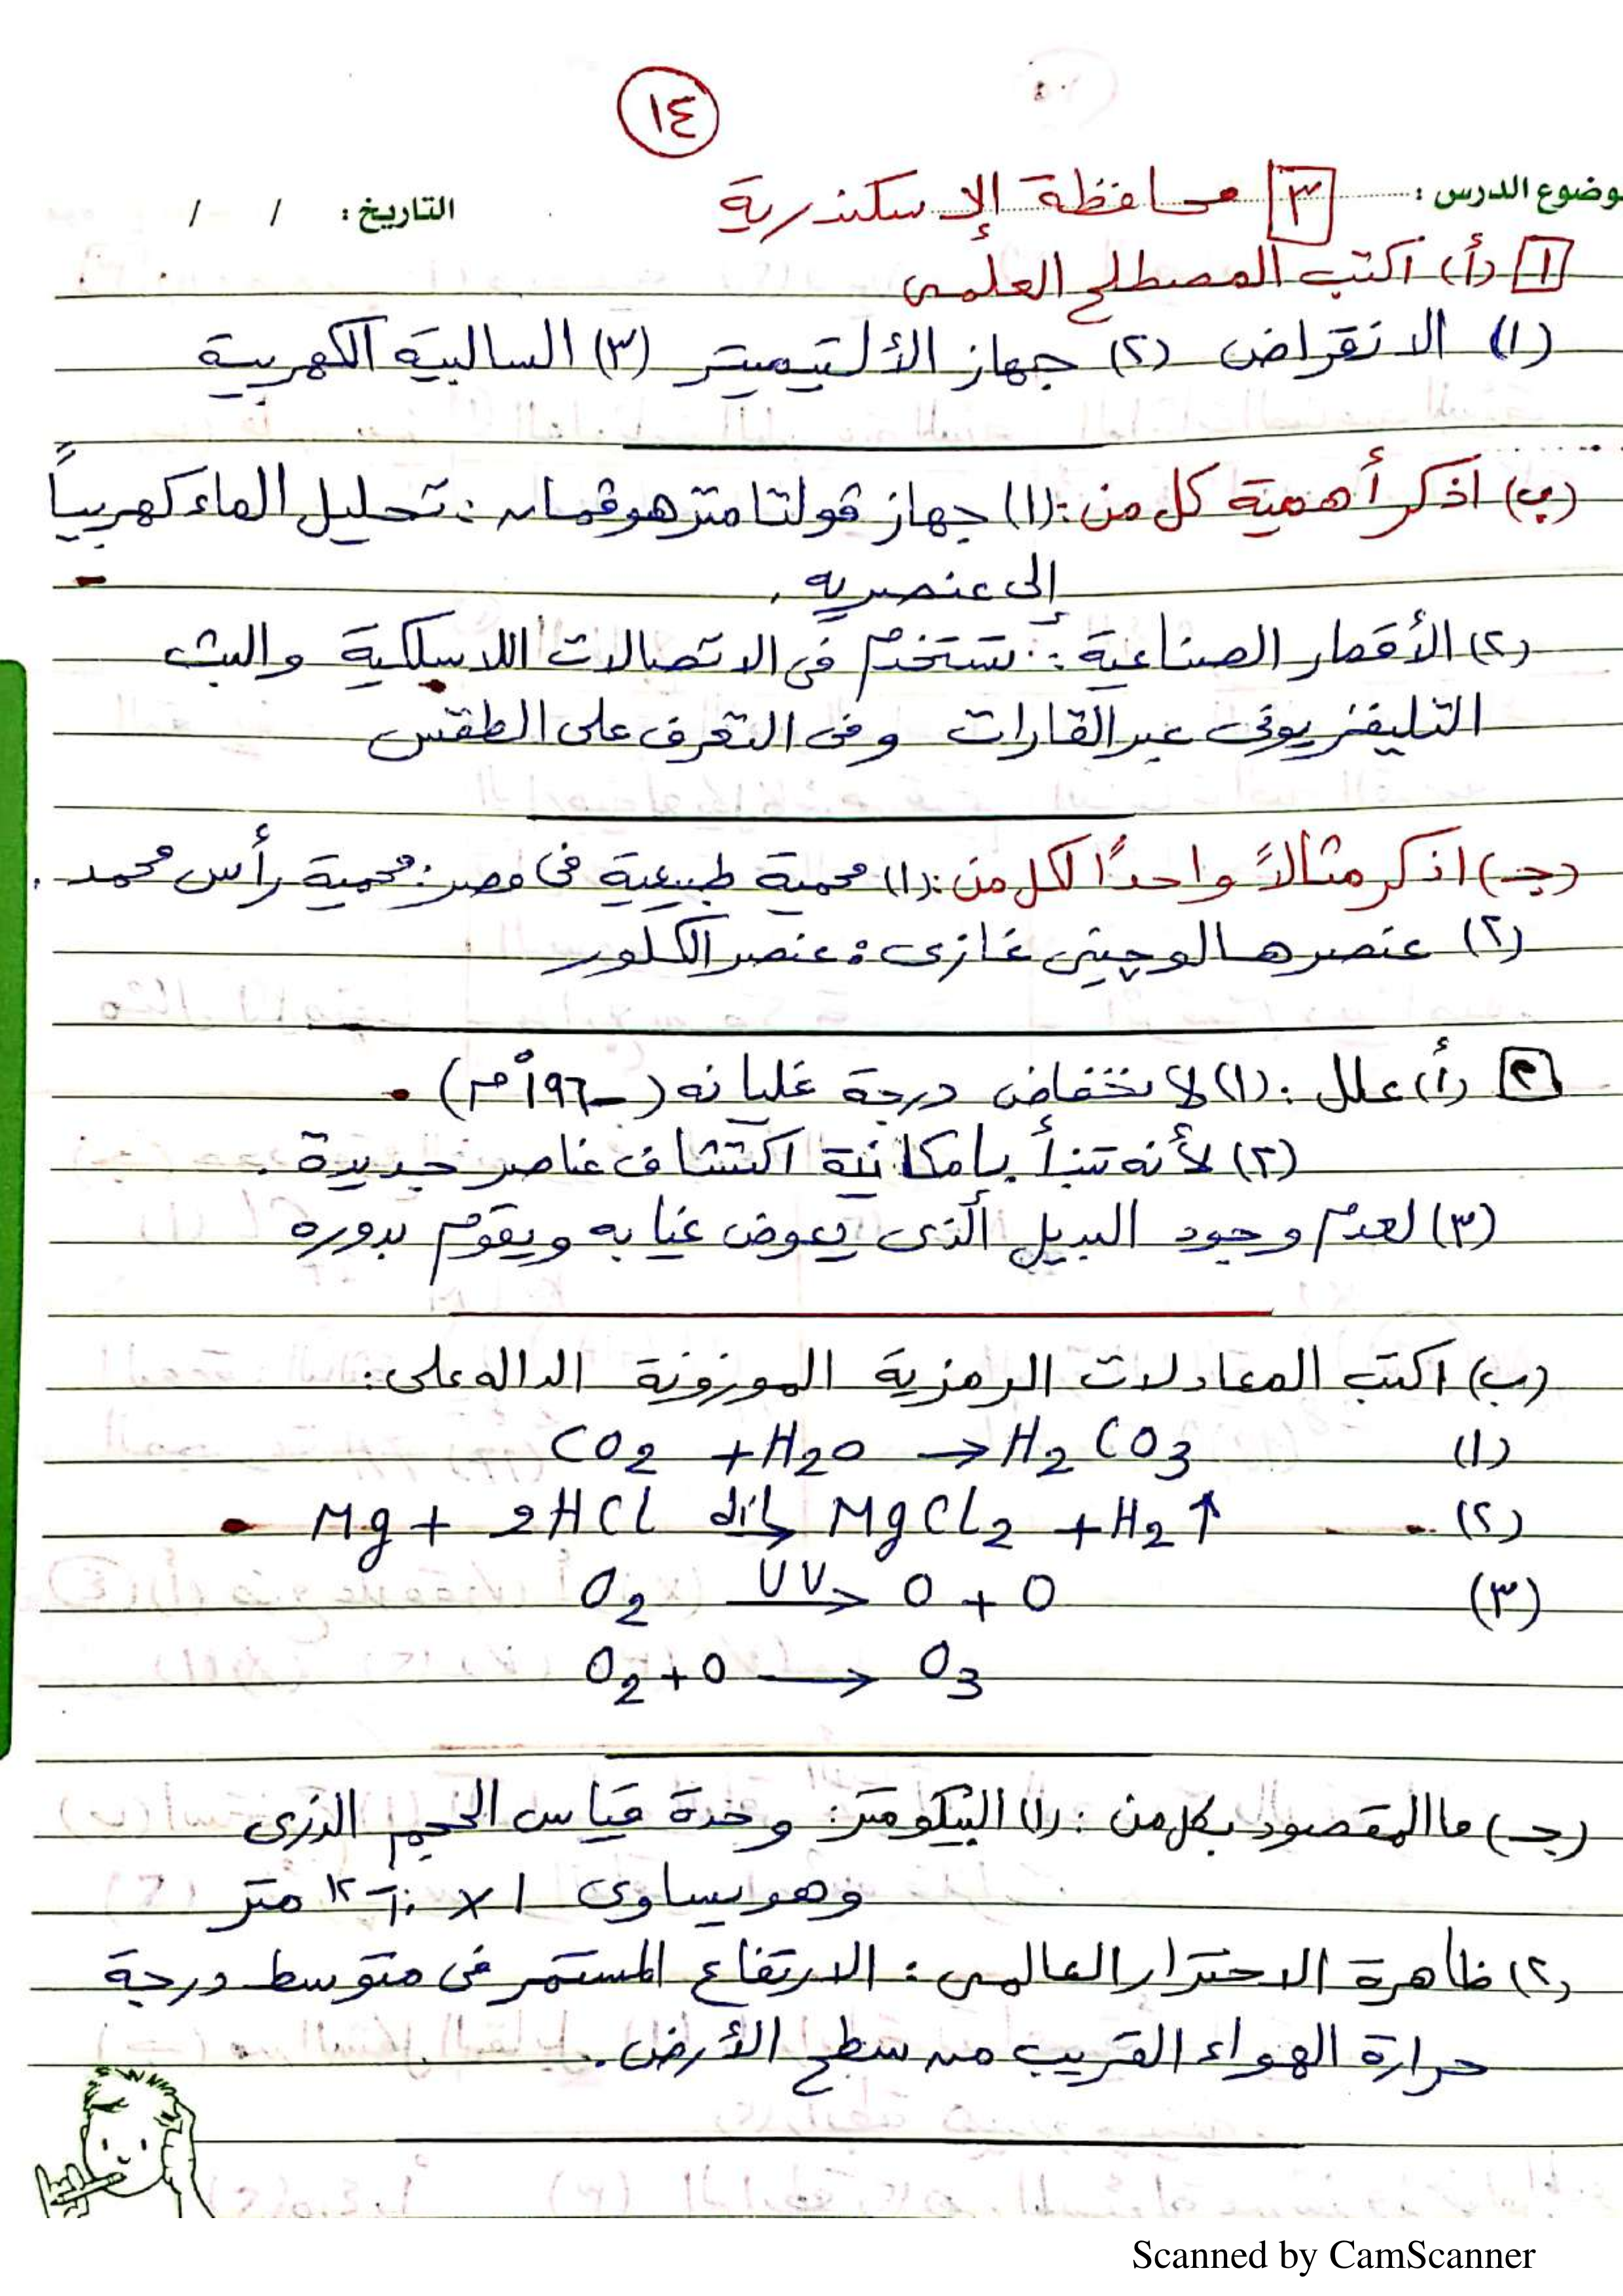 ١٤
موضوع الدرس : ٣ محافظة الإسكندرية
التاريخ : / /
١ (أ) اكتب المصطلح العلمى
(١) الانقراض (٢) جهاز الألتيميتر (٣) السالبية الكهربية
(ب) اذكر أهمية كل من : (١) جهاز ڤولتامتر هوفمان : تحليل الماء كهربياً
إلى عنصريه .
(٢) الأقمار الصناعية : تستخدم فى الاتصالات اللاسلكية والبث
التليفزيونى عبر القارات وفى التعرف على الطقس
(جـ) اذكر مثالاً واحدًا لكل من : (١) محمية طبيعية فى مصر : محمية رأس محمد .
(٢) عنصر هالوچينى غازى : عنصر الكلور
٢ (أ) علل : (١) لانخفاض درجة غليانه (-١٩٦°م)
(٢) لأنه تنبأ بإمكانية اكتشاف عناصر جديدة .
(٣) لعدم وجود البديل الذى يعوض غيابه ويقوم بدوره
(ب) اكتب المعادلات الرمزية الموزونة الداله على :
(١) CO2 + H2O → H2CO3
(٢) Mg + 2HCl مخفف→ MgCl2 + H2↑
(٣) O2 UV→ O + O
O2 + O → O3
(جـ) ما المقصود بكل من : (١) البيكومتر : وحدة قياس الحجم الذرى
وهو يساوى ١ × ١٠-١٢ متر
(٢) ظاهرة الاحترار العالمى : الارتفاع المستمر فى متوسط درجة
حرارة الهواء القريب من سطح الأرض .
Scanned by CamScanner